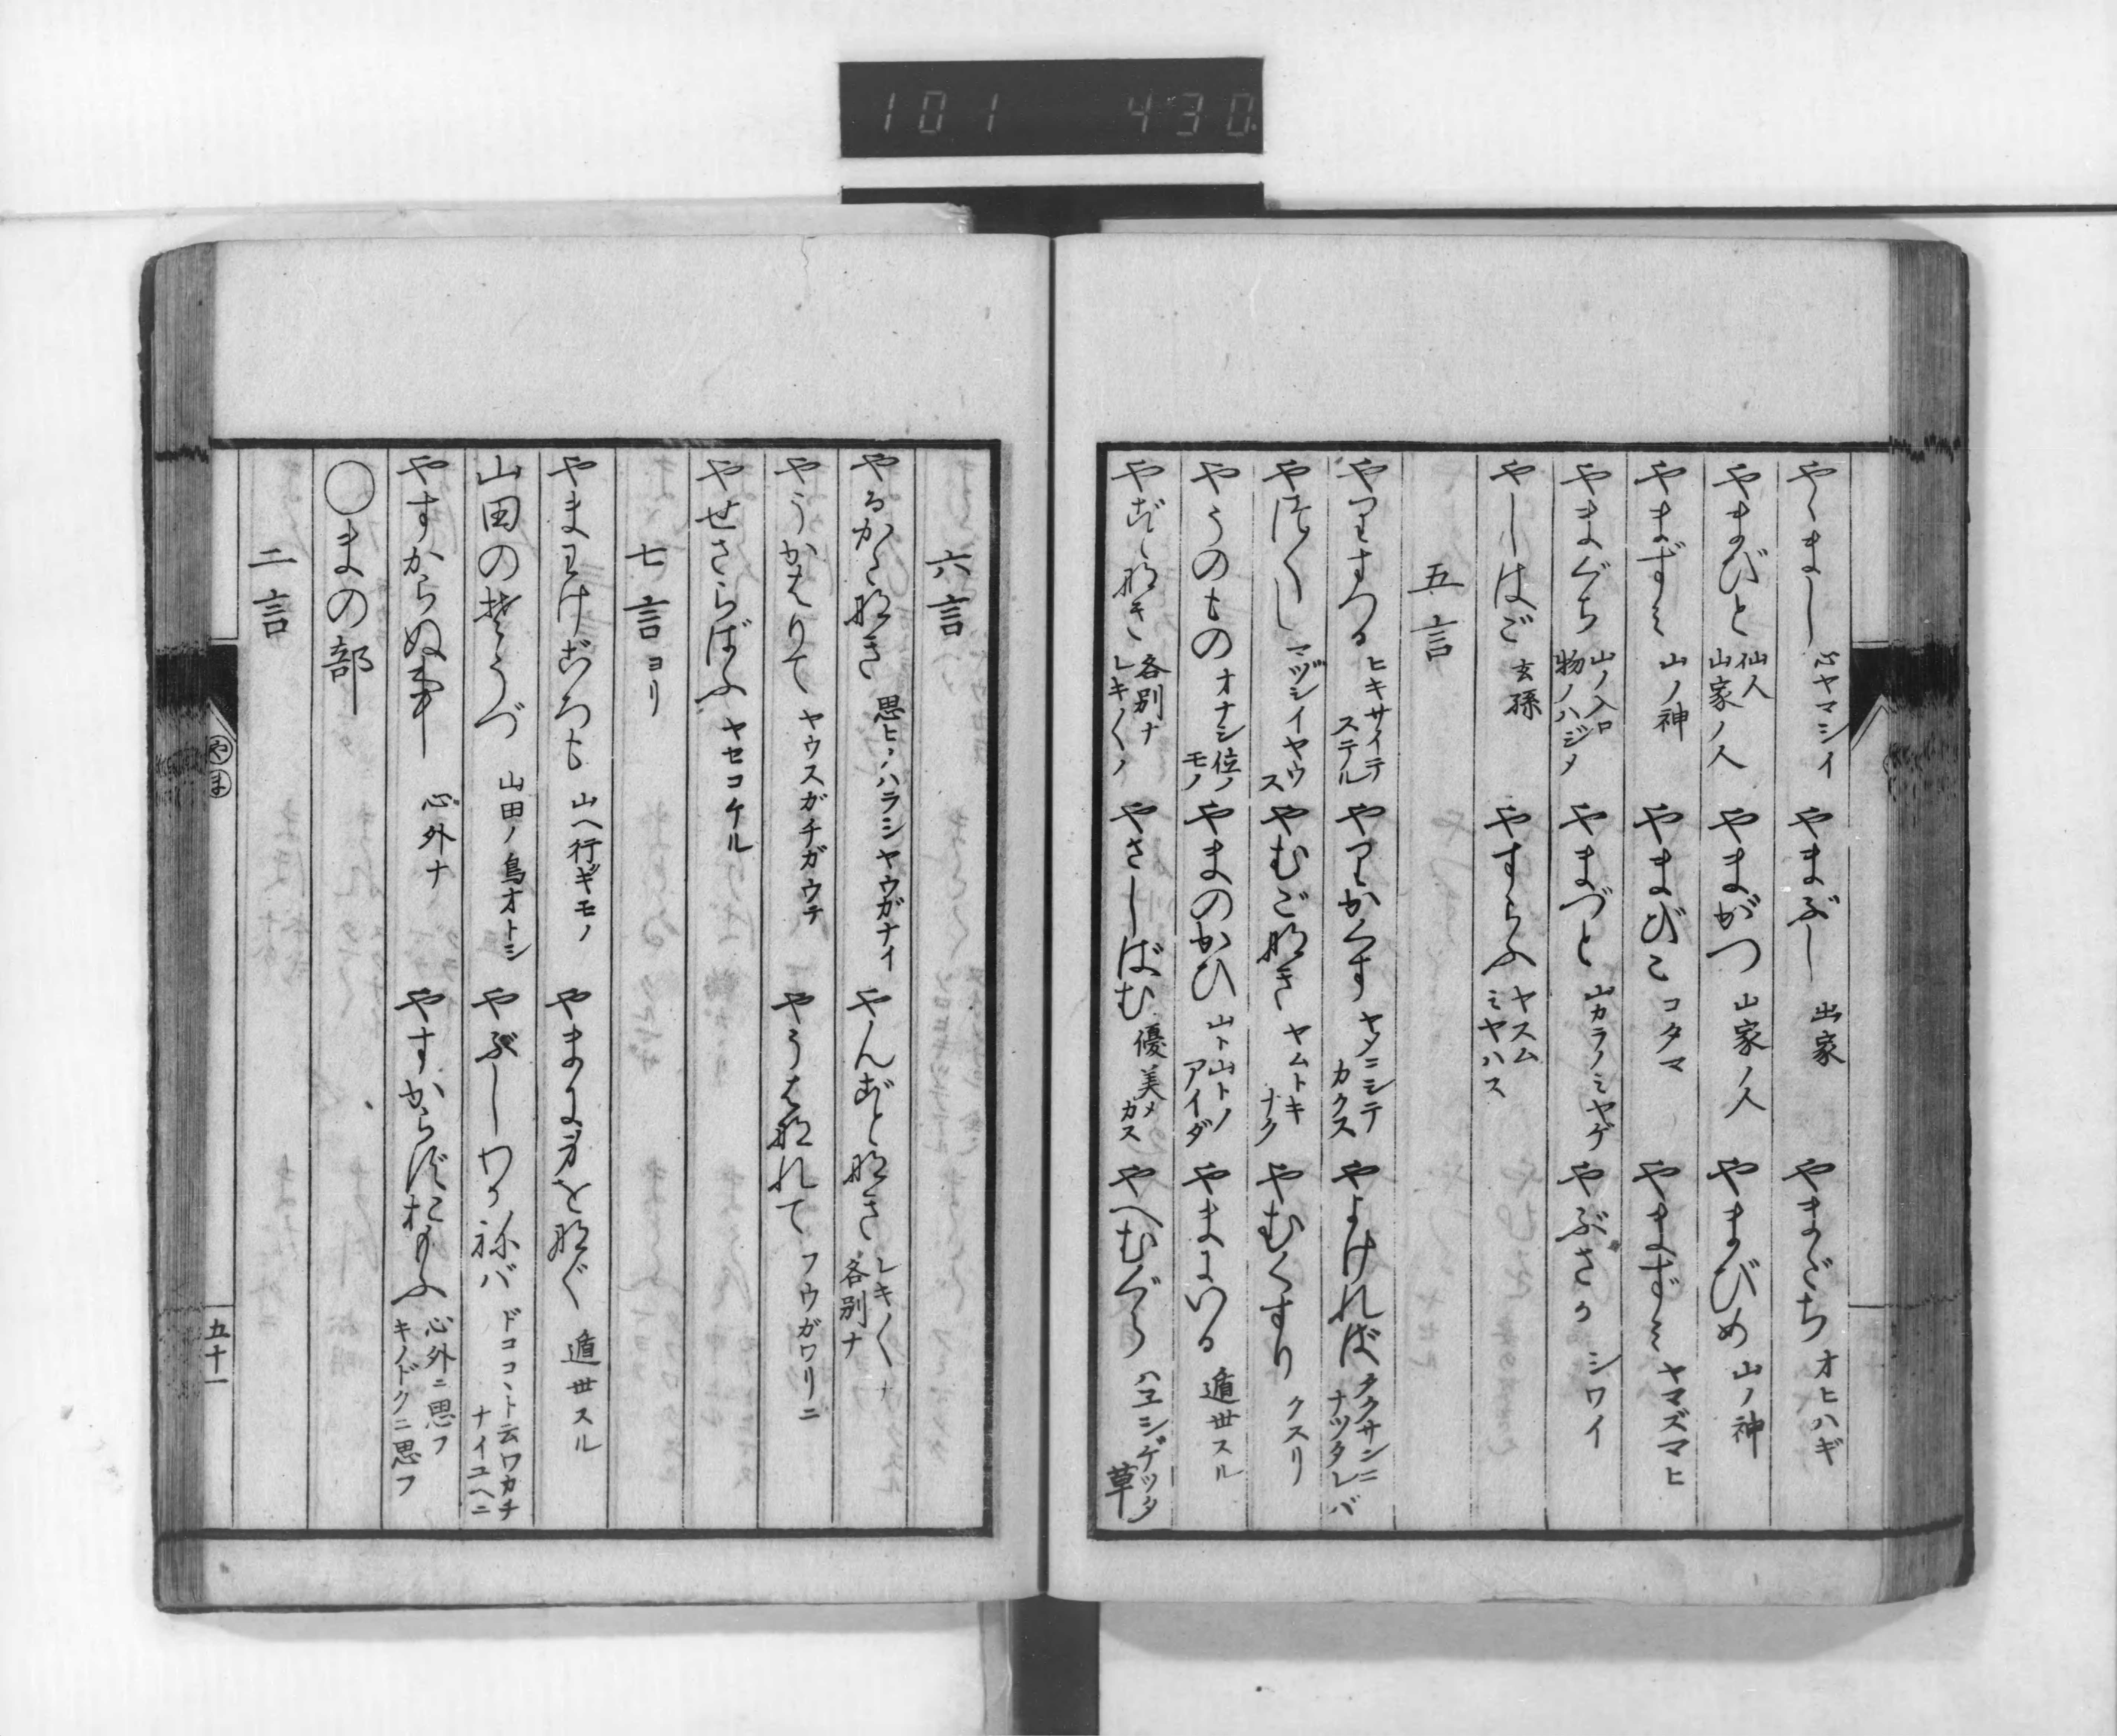 101 430
やゝまし 心ヤマシイ やまぶし 出家 やまごち オヒハギ
やまびと 仙人 山家ノ人 やまがつ 山家ノ人 やまびめ 山ノ神
やまずミ 山ノ神 やまびこ コタマ やまずミ ヤマズマヒ
やまぐち 山ノ入口 物ノハジメ やまづと 山カラノミヤゲ やぶさか シワイ
やしはご 玄孫 やすらふ ヤスム ミヤハス
五言
やりすつる ヒキサイテ ステル やりかくす ヤメニシテ カクス やよけれバ タクサンニ ナツタレバ
やつくし マヅシイヤウス やむご那き ヤムトキ ナク やむくすり クスリ
やうのもの オナシ位ノ モノ やまのかひ 山ト山トノ アイダ やまにいる 遁世スル
やごと那き 各別ナ レキ〱ノ やさしばむ 優美メカス やへむぐら ハヱシゲツタ 草
六言
やるかた那き 思ヒノハラシヤウガナイ やんごと那き レキ〱ナ 各別ナ
やうかはりて ヤウスガチガウテ やうはなれて フウガワリニ
やせさらばふ ヤセコケル
七言 ヨリ
やまわけごろも 山ヘ行ギモノ やまに身を那ぐ 遁世スル
山田のそうづ 山田ノ鳥オトシ やぶしわかねバ ドココヽト云ワカチ ナイユヘニ
やすからぬ事 心外ナ やすからずおもふ 心外ニ思フ キノドクニ思フ
○まの部
二言
やま
五十一